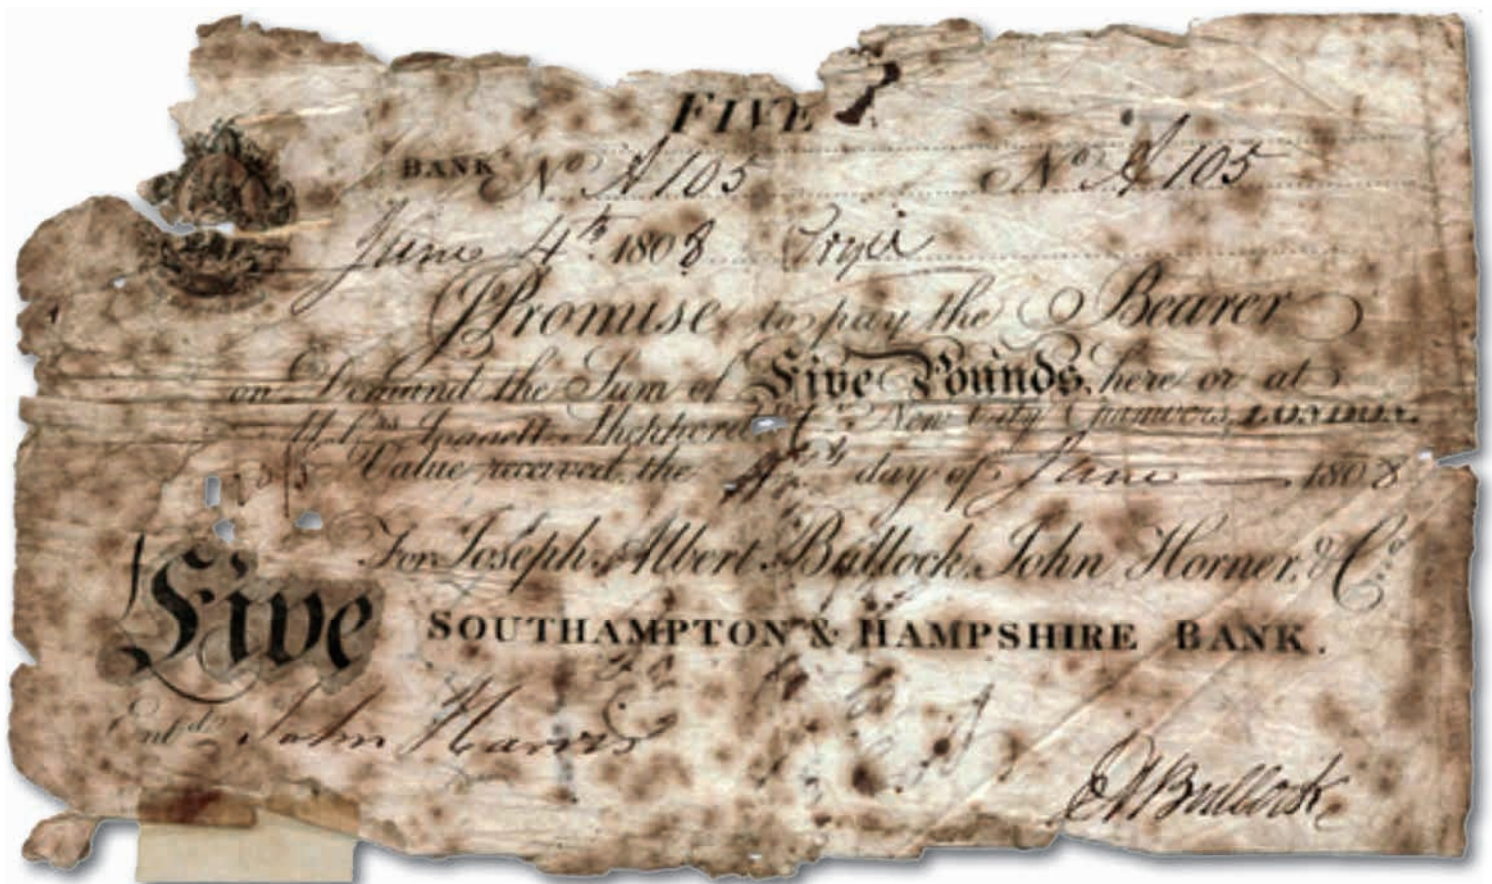 FIVE
BANK No. A105 No. A105
June 4th 1808
I Promise to pay the Bearer
on Demand the Sum of Five Pounds, here or at
New City Chambers, LONDON.
Value received, the 4th day of June 1808
For Joseph Albert Bullock, John Horner, & Co.
Five
SOUTHAMPTON & HAMPSHIRE BANK.
Entd. John Harris
Bullock